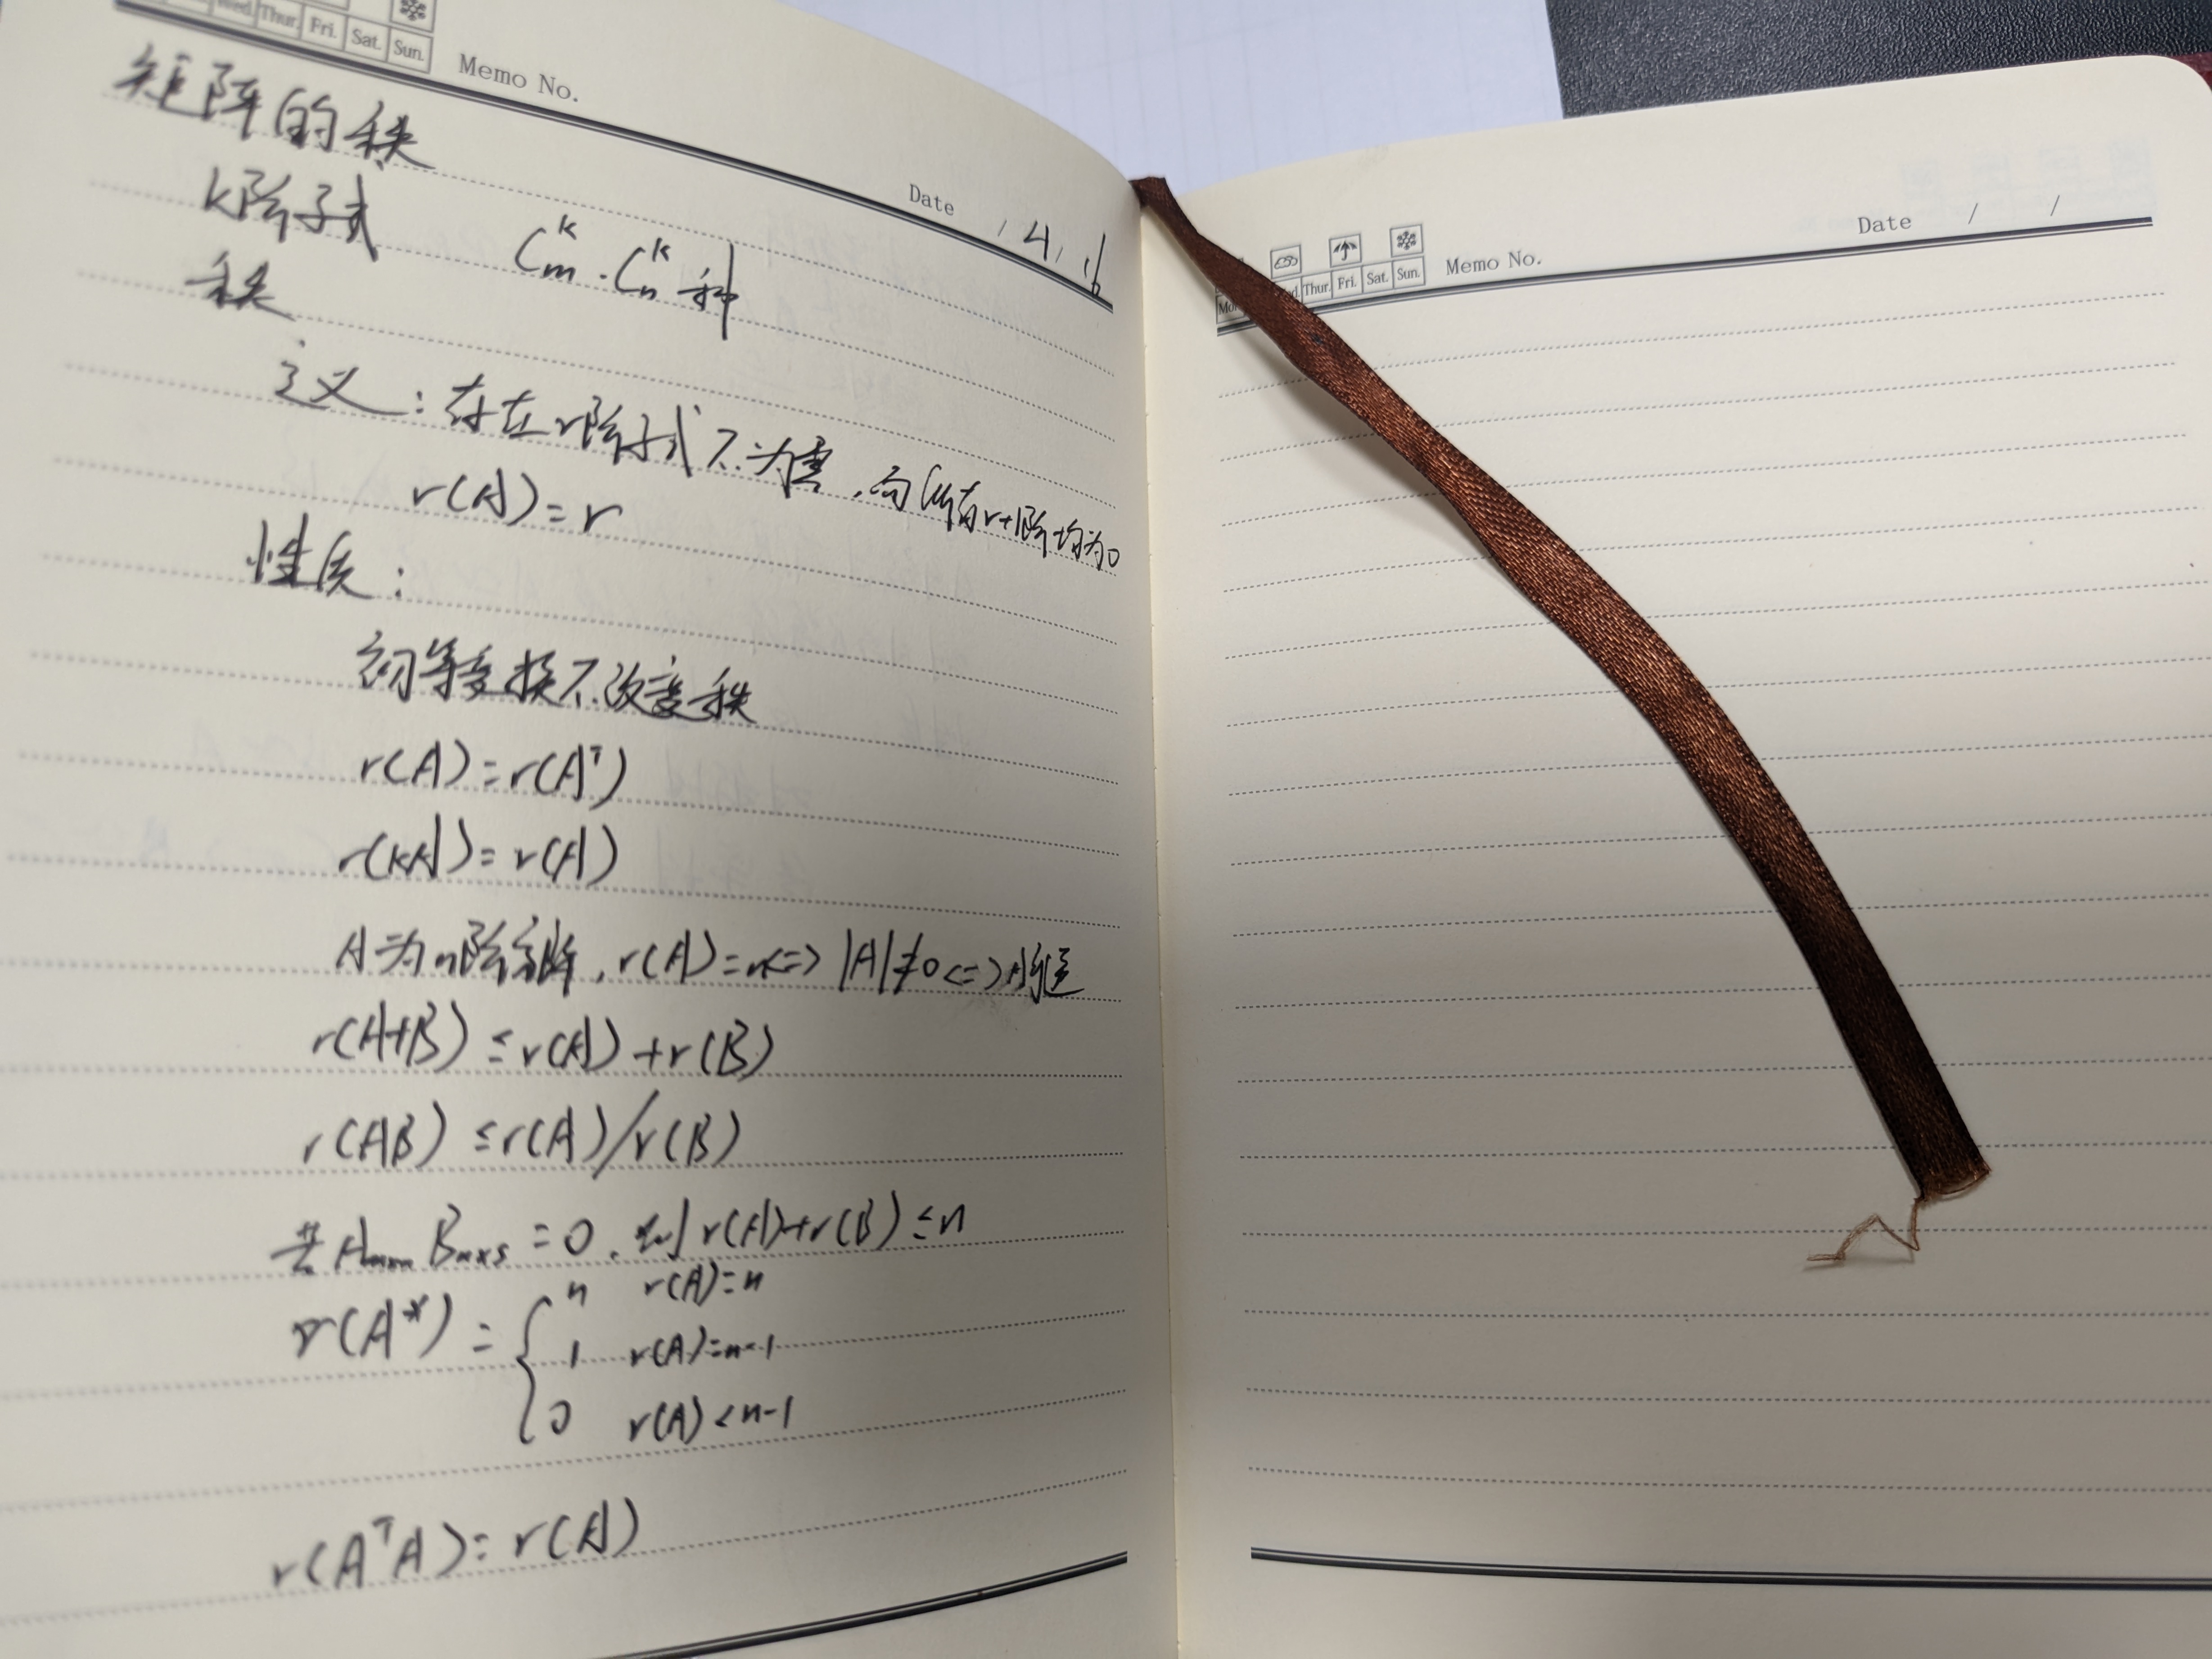 Wed. Thur. Fri. Sat. Sun. Memo No.
Date / 4 / 16
矩阵的秩
k阶子式 C_m^k · C_n^k 种
秩
定义：存在r阶子式不为零，而所有r+1阶均为0
r(A)=r
性质：
初等变换不改变秩
r(A)=r(A^T)
r(kA)=r(A)
A为n阶方阵，r(A)=n<=>|A|≠0<=>A可逆
r(A+B)≤r(A)+r(B)
r(AB)≤r(A)/r(B)
若A_{m×n}B_{n×s}=0，则r(A)+r(B)≤n
r(A*)={n r(A)=n
1 r(A)=n-1
0 r(A)<n-1
r(A^TA)=r(A)
Date / /
Thur. Fri. Sat. Sun. Memo No.